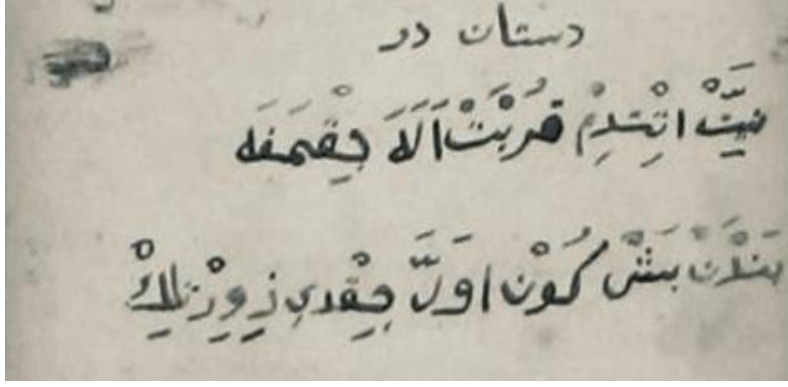 دستان در
نِيَّتْ اتْتِدِمْ قُرْبَتْ اَلَهَ چِقْمَغَه
بَنْدَنْ بَشْ كُوْنْ اَوَلَّ چِقْدِى